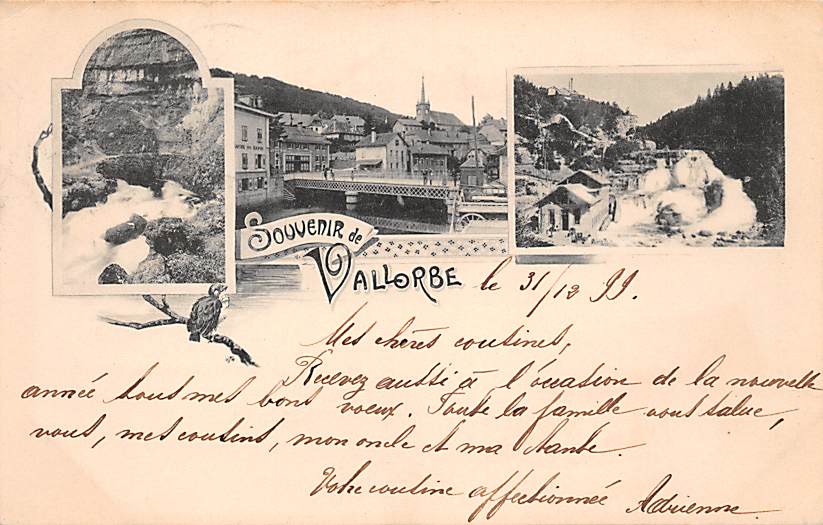 SOUVENIR de
VALLORBE
le 31/12 99.
Mes chères cousines,
Recevez aussi à l'occasion de la nouvelle
année tous mes bons voeux. Toute la famille vous salue,
vous, mes cousins, mon oncle et ma tante.
Votre cousine affectionnée Adrienne.